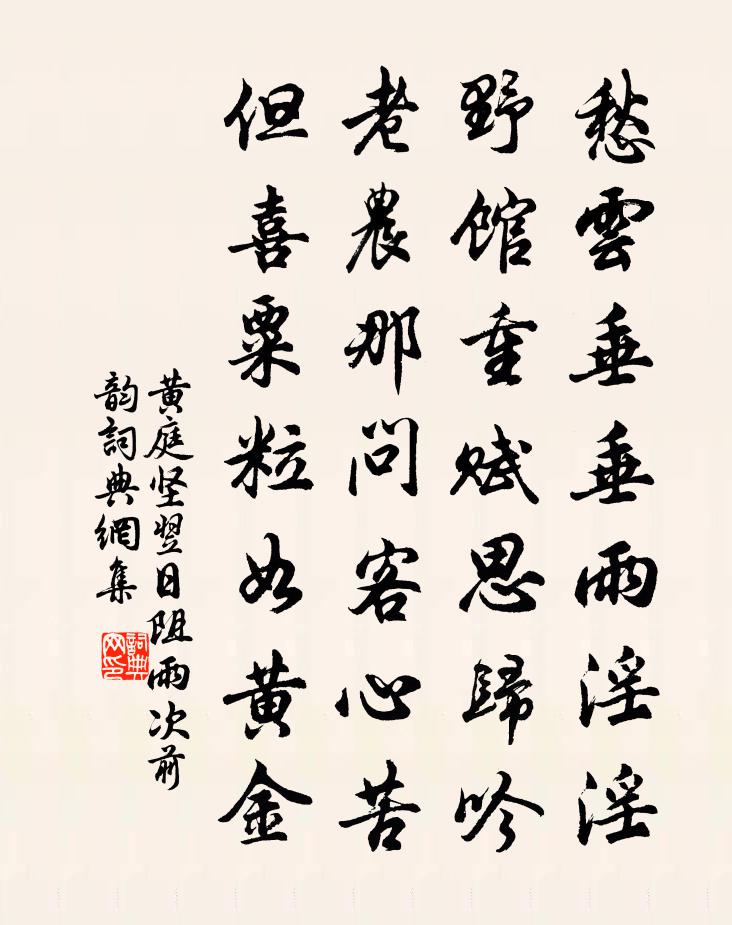 愁雲垂垂雨淫淫
野館重賦思歸吟
老農那問客心苦
但喜粟粒如黄金
黄庭坚翌日阻雨次前
韵詞典網集
詞典網印